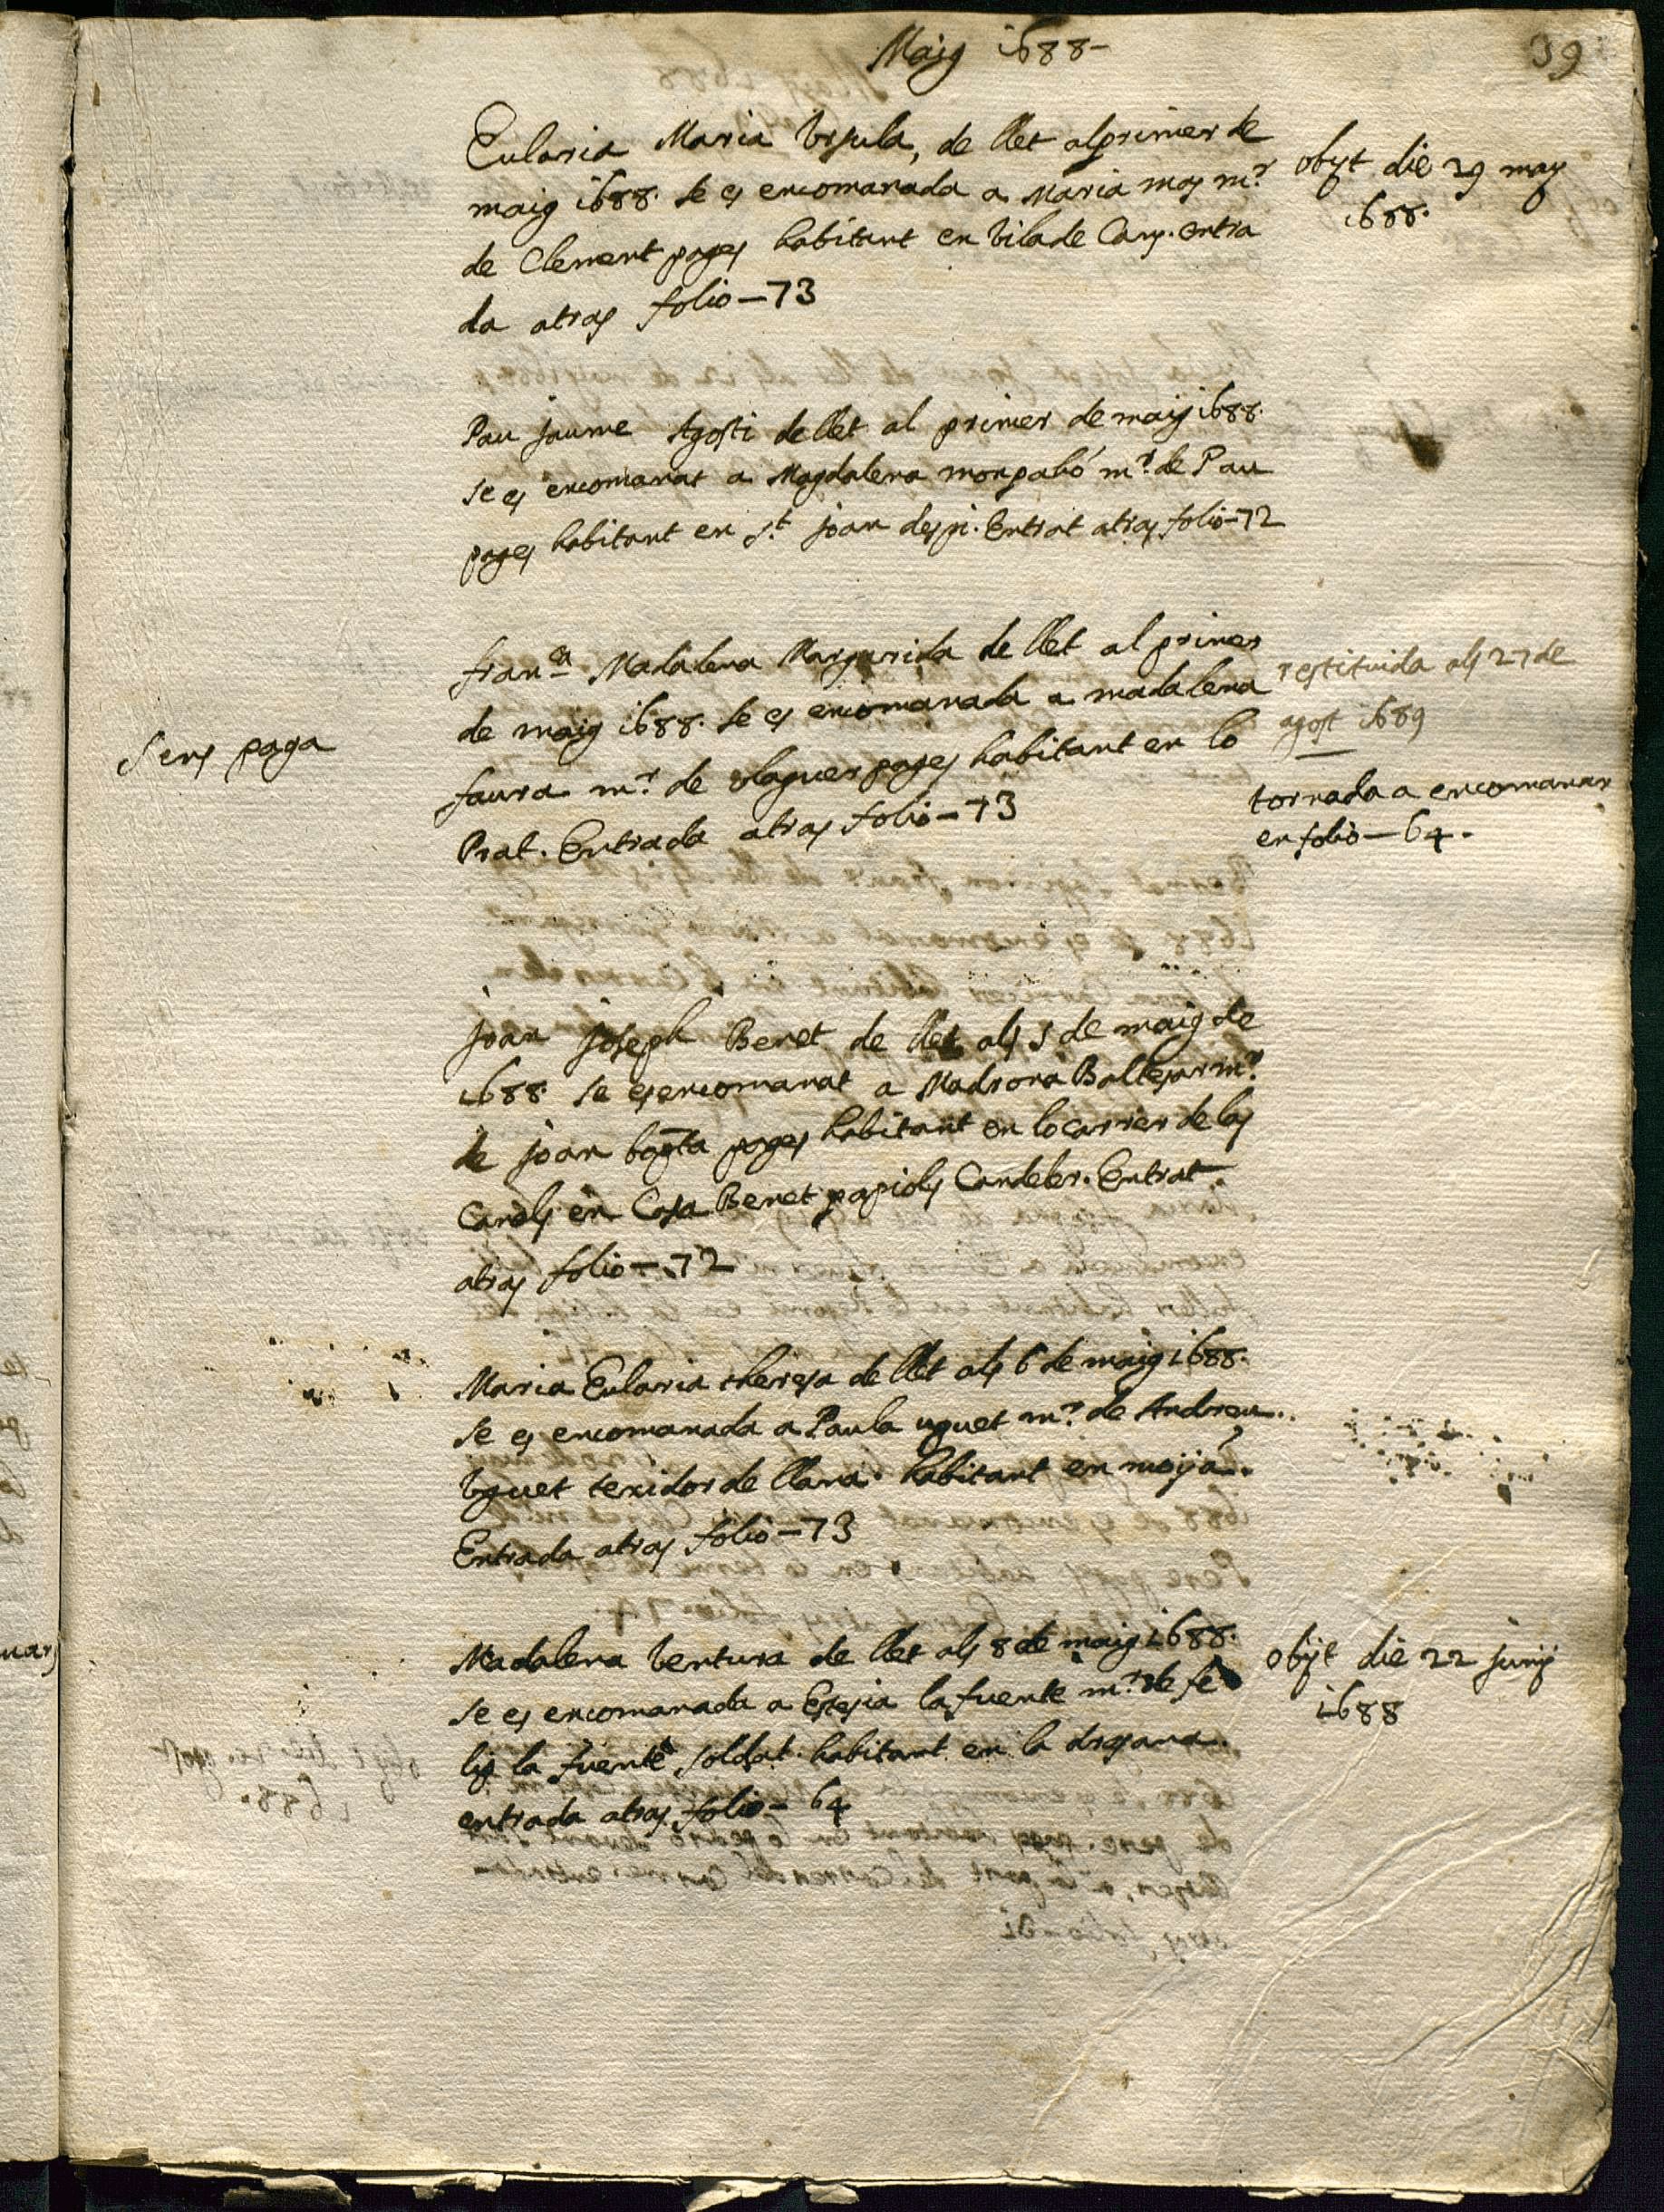 Maig 1688-
39
Eularia Maria Vrsula, de llet al primer de
maig 1688. se es encomanada a Maria mas mr
de Clement pages habitant en Vilade Cans. entra
da atras folio-73
obijt die 29 maij
1688.
Pau jaume Agosti de llet al primer de maig 1688.
se es encomanat a Magdalena monpabó mr de Pau
pages habitant en st joan despi. Entrat atras folio-72
franca Madalena Margarida de llet al primer
de maig 1688. se es encomanada a madalena
faura mr de olaguer pages habitant en lo
Prat. Entrada atras folio-73
Sens paga
restituida als 27 de
agost 1689
tornada a encomanar
en folio-64.
joan joseph Benet de llet als 5 de maig de
1688. se es encomanat a Madrona Baltesar mr
de joan bapta pages habitant en lo carrer de las
Candls en Casa Benet papiols Candeler. Entrat
atras folio-72
Maria Eularia theresa de llet als 6 de maig 1688.
se es encomanada a Paula uguet mr de Andreu
Vguet texidor de llana. habitant en moijá.
Entrada atras folio-73
Madalena Ventura de llet als 8 de maig 1688.
se es encomanada a la fuente mr de fe
lis la fuente soldat. habitant en la drasana.
entrada atras folio-64
obijt die 22 junij
1688